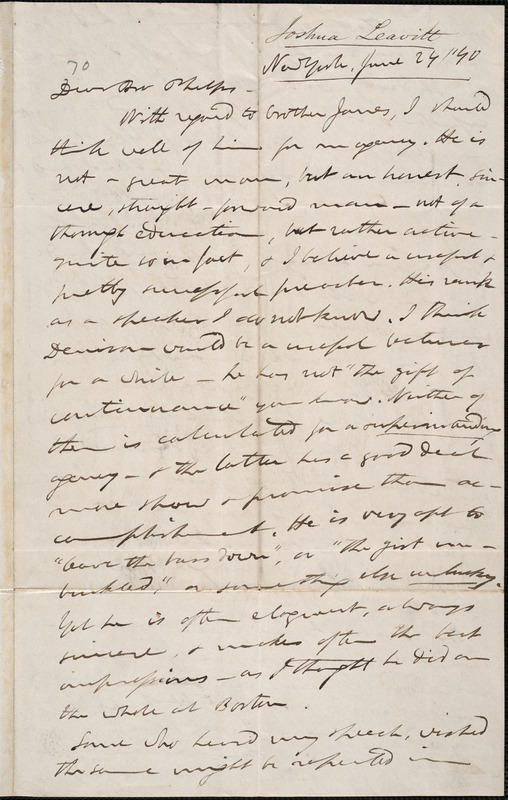 Joshua Leavitt
70
New York, June 24/40
Dear Bro Phelps -
With regard to brother Jones, I should
think well of him for an agency. He is
not a great man, but an honest, sin-
cere, straight-forward man - not of a
thorough education, but rather active -
quite comfort, & I believe a useful &
pretty successful preacher. His rank
as a speaker I do not know. I think
Denison would be a useful lecturer
for a while - he has not "the gift of
continuance" you know. Neither of
them is calculated for a superintending
agency - & the latter has a good deal
more show & promise than ac-
complishment. He is very apt to
"leave the bars down", or "the girt un-
buckled", or something else unlucky.
Yet he is often eloquent, always
sincere, & makes often the best
impressions - as I thought he did on
the whole at Boston.
Some who heard my speech, wished
the same might be repeated in